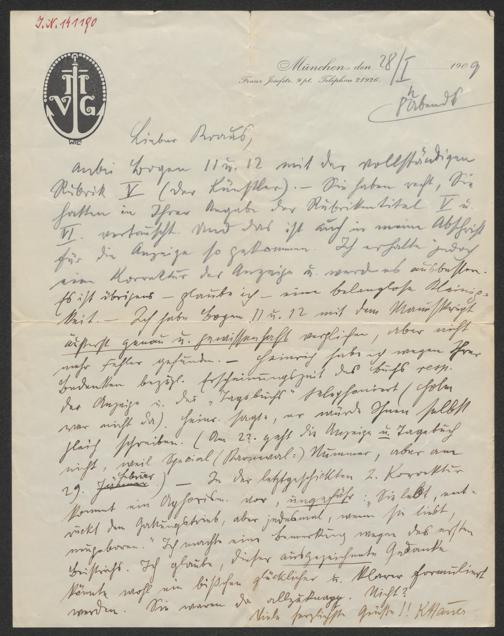 J.N. 141190
VHG
München, den 28/I 1909
Franz Josefstr. 9 pt. Telephon 21926.
8 h Abends
Lieber Kraus,
anbei Bogen 11 u. 12 mit der vollständigen
Rubrik V (der Künstler). — Sie haben recht, Sie
hatten in Ihrer Angabe der Rubrikentitel V u.
VI vertauscht. Und das ist auch in meine Abschrift
für die Anzeige so gekommen. Ich erhalte jedoch
eine Korrektur der Anzeige u. werd es ausbessern.
Es ist übrigens — glaube ich — eine belanglose Kleinig-
keit. — Ich habe Bogen 11 u. 12 mit dem Manuskript
äußerst genau u. gewissenhaft verglichen, aber nicht
mehr Fehler gefunden. — Heinrich habe ich wegen Ihrer
Bedenken bezügl. Erscheinungszeit des Buchs resp.
der Anzeige u. des "Tagebuchs" telephoniert (Holm
war nicht da). Heinr. sagte, er würde Ihnen selbst
gleich schreiben. (Am 22. geht die Anzeige u Tagebuch
nicht, weil Spezial (Karneval-) Nummer, aber am
29. Februar) — In der letztgeschickten 2. Korrektur
kommt ein Aphorism. vor, ungefähr: „Sie lebt, ent-
rückt dem Gattungstrieb, aber jedesmal, wenn sie liebt,
neugeboren." Ich machte eine Bemerkung wegen des ersten
Beistrichs. Ich glaube, dieser ausgezeichnete Gedanke
könnte wohl ein bißchen glücklicher u. klarer formuliert
werden. Sie waren da allzuknapp. Nicht?
Viele herzlichste Grüße!! KHauer